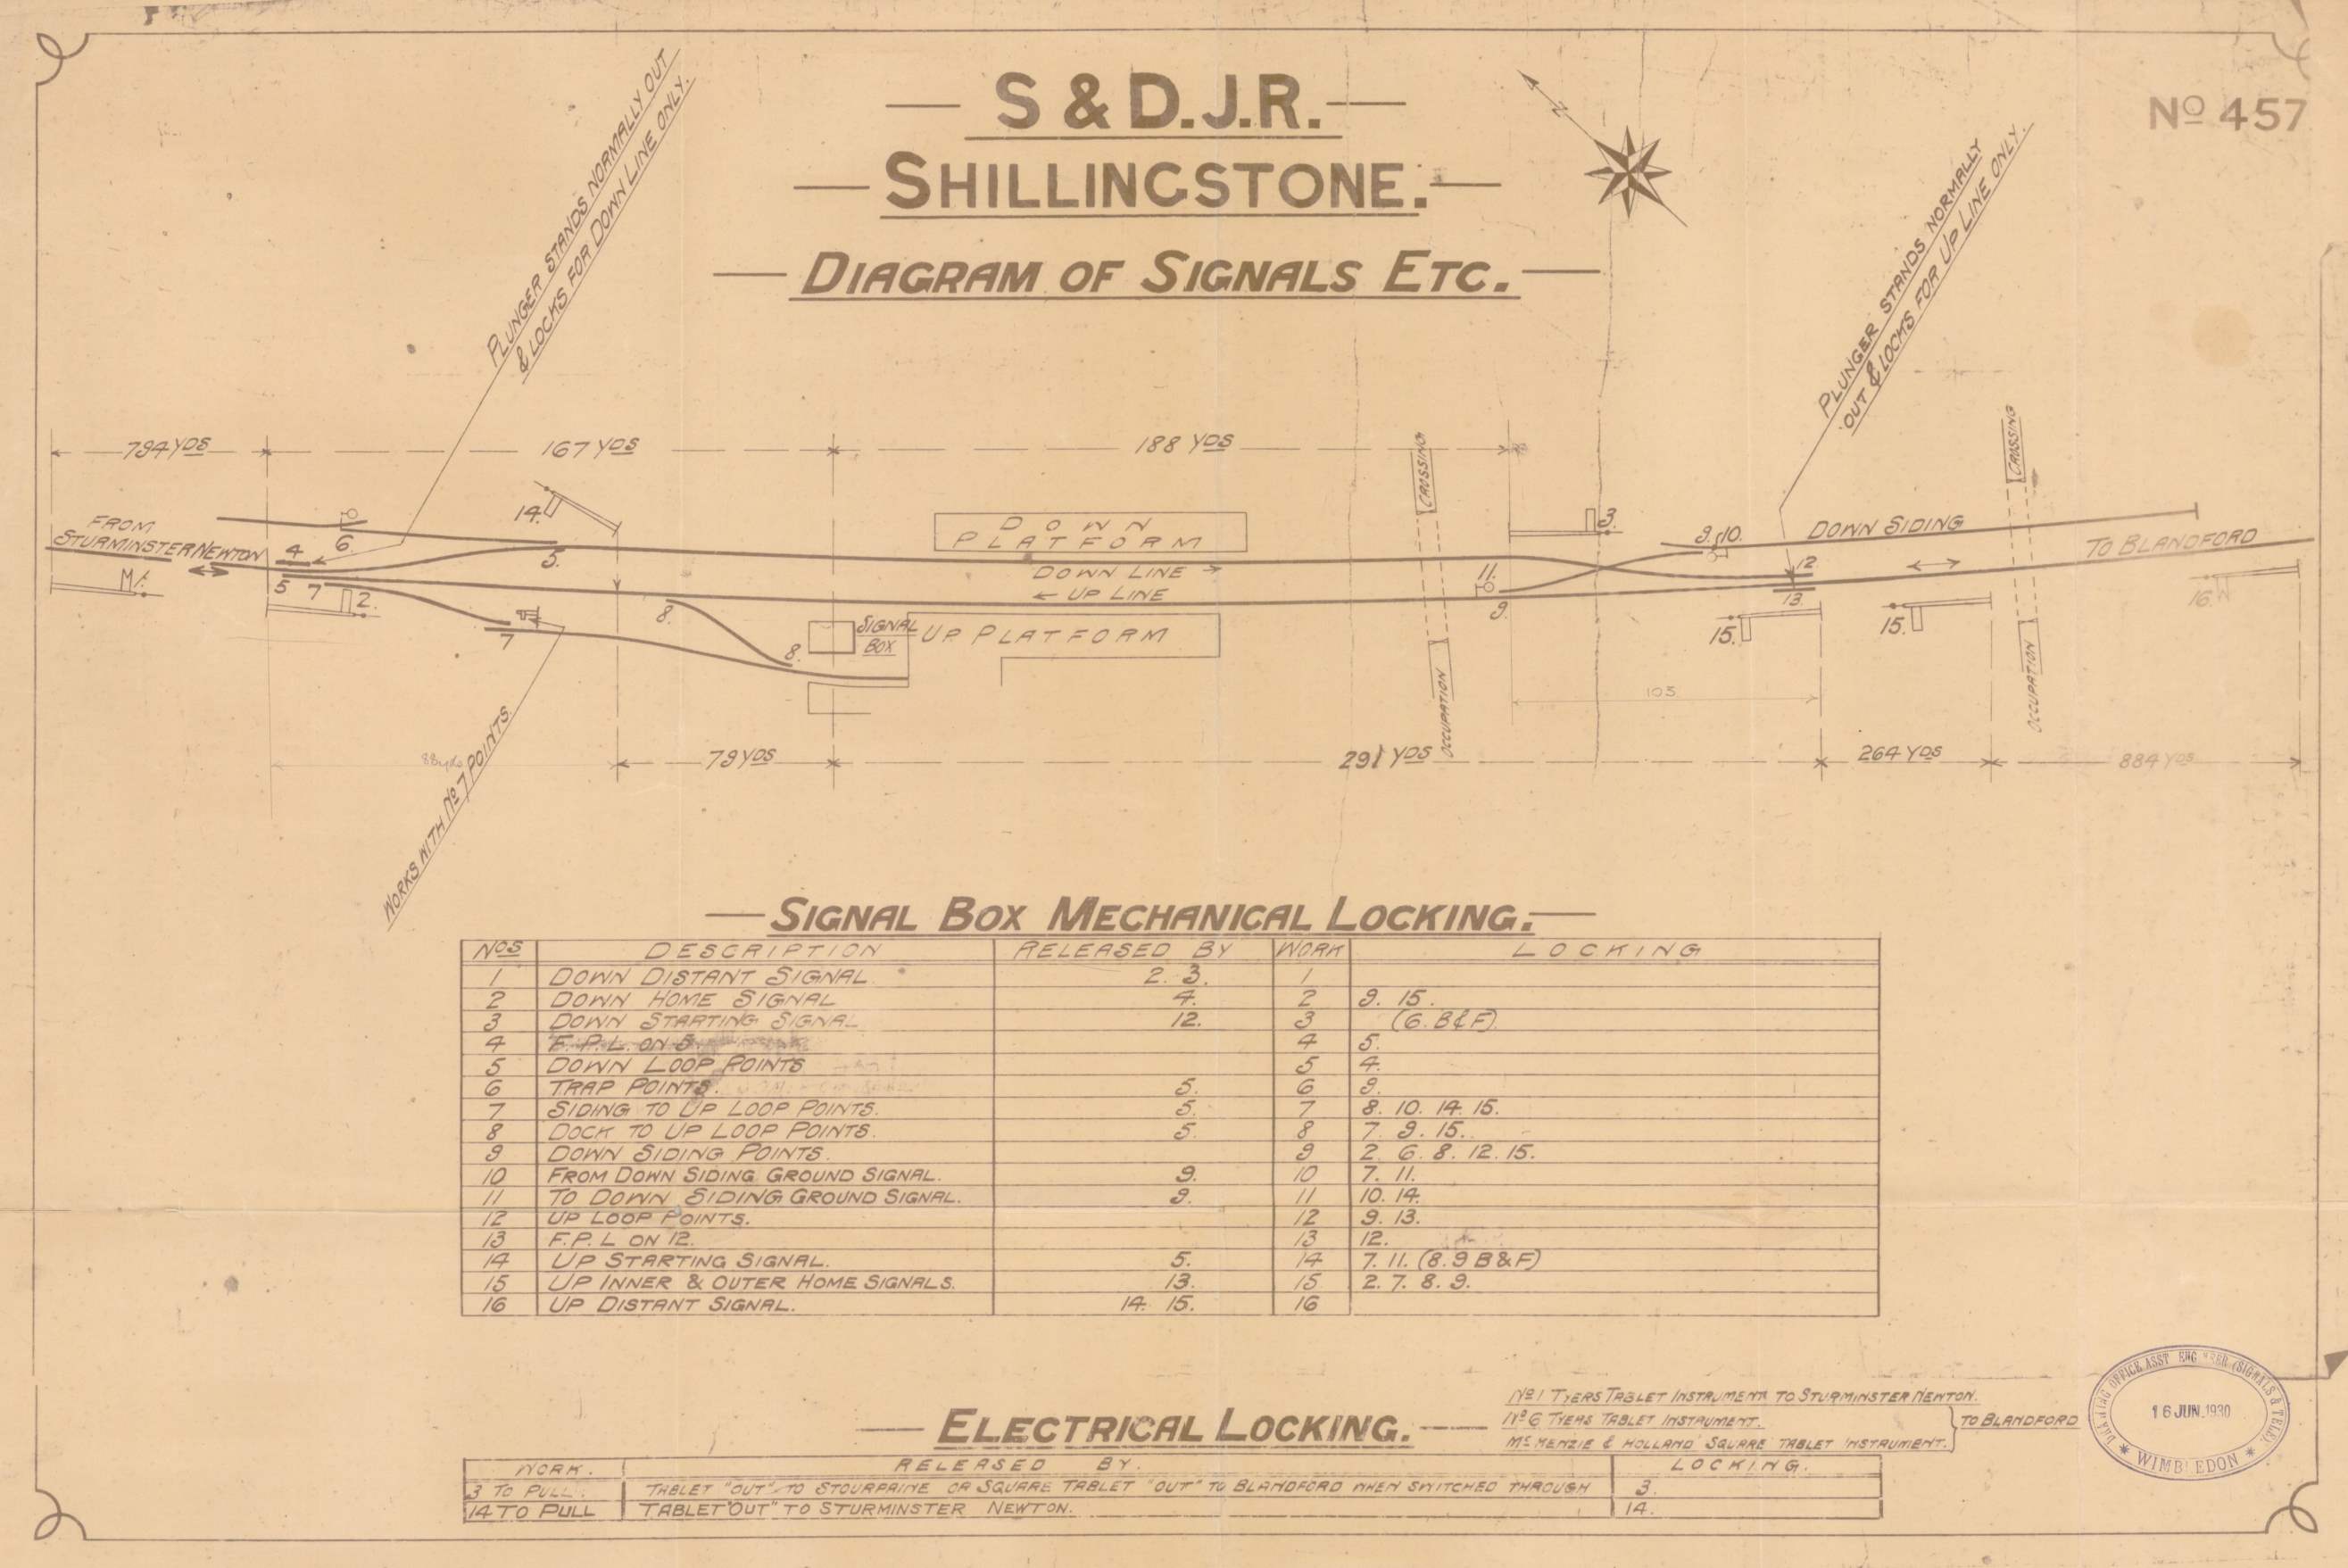 S & D.J.R.
SHILLINGSTONE.
DIAGRAM OF SIGNALS ETC.
Nº 457
N
PLUNGER STANDS NORMALLY OUT
& LOCKS FOR DOWN LINE ONLY.
PLUNGER STANDS NORMALLY
OUT & LOCKS FOR UP LINE ONLY.
794 YDS
167 YDS
188 YDS
CROSSING
CROSSING
FROM
STURMINSTER NEWTON
4
6.
14.
5.
DOWN
PLATFORM
DOWN LINE →
← UP LINE
3.
9. 10.
DOWN SIDING
TO BLANDFORD
5 7 2.
7
8.
8.
SIGNAL
BOX
UP PLATFORM
11.
9.
12
13.
15.
15.
16.
OCCUPATION
OCCUPATION
105
88 yds
79 YDS
291 YDS
264 YDS
884 YDS
WORKS WITH Nº 7 POINTS.
SIGNAL BOX MECHANICAL LOCKING.
NOS DESCRIPTION RELEASED BY WORK LOCKING
1 DOWN DISTANT SIGNAL. 2. 3. 1
2 DOWN HOME SIGNAL 4. 2 9. 15.
3 DOWN STARTING SIGNAL 12. 3 (6. B&F)
4 F.P.L. ON 5 4 5.
5 DOWN LOOP POINTS 5 4.
6 TRAP POINTS. 5. 6 9.
7 SIDING TO UP LOOP POINTS. 5. 7 8. 10. 14. 15.
8 DOCK TO UP LOOP POINTS. 5. 8 7. 9. 15.
9 DOWN SIDING POINTS. 9 2. 6. 8. 12. 15.
10 FROM DOWN SIDING GROUND SIGNAL. 9. 10 7. 11.
11 TO DOWN SIDING GROUND SIGNAL. 9. 11 10. 14.
12 UP LOOP POINTS. 12 9. 13.
13 F.P.L ON 12. 13 12.
14 UP STARTING SIGNAL. 5. 14 7. 11. (8. 9 B & F)
15 UP INNER & OUTER HOME SIGNALS. 13. 15 2. 7. 8. 9.
16 UP DISTANT SIGNAL. 14. 15. 16
ELECTRICAL LOCKING.
Nº 1 TYERS TABLET INSTRUMENT TO STURMINSTER NEWTON.
Nº 6 TYERS TABLET INSTRUMENT.
McKENZIE & HOLLAND SQUARE TABLET INSTRUMENT.
TO BLANDFORD
WORK. RELEASED BY. LOCKING.
3 TO PULL. TABLET "OUT" TO STOURPAINE OR SQUARE TABLET "OUT" TO BLANDFORD WHEN SWITCHED THROUGH 3.
14 TO PULL TABLET "OUT" TO STURMINSTER NEWTON. 14.
OFFICE ASST (SIGNALS & TELE).
16 JUN. 1930
WIMBLEDON